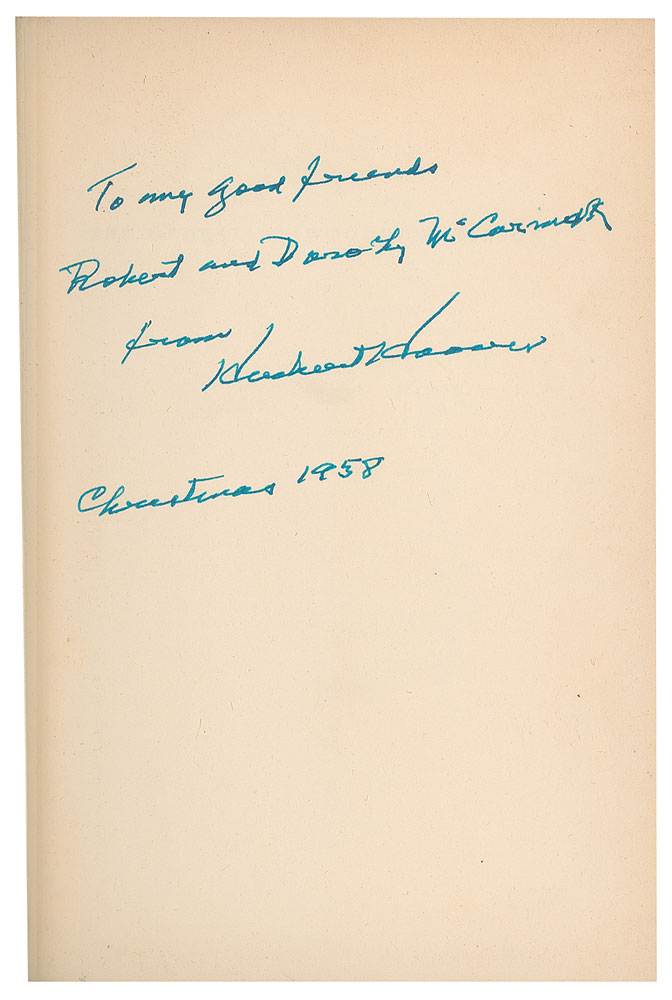 To my good friends
Robert and Dorothy McCormick
from Herbert Hoover
Christmas 1958